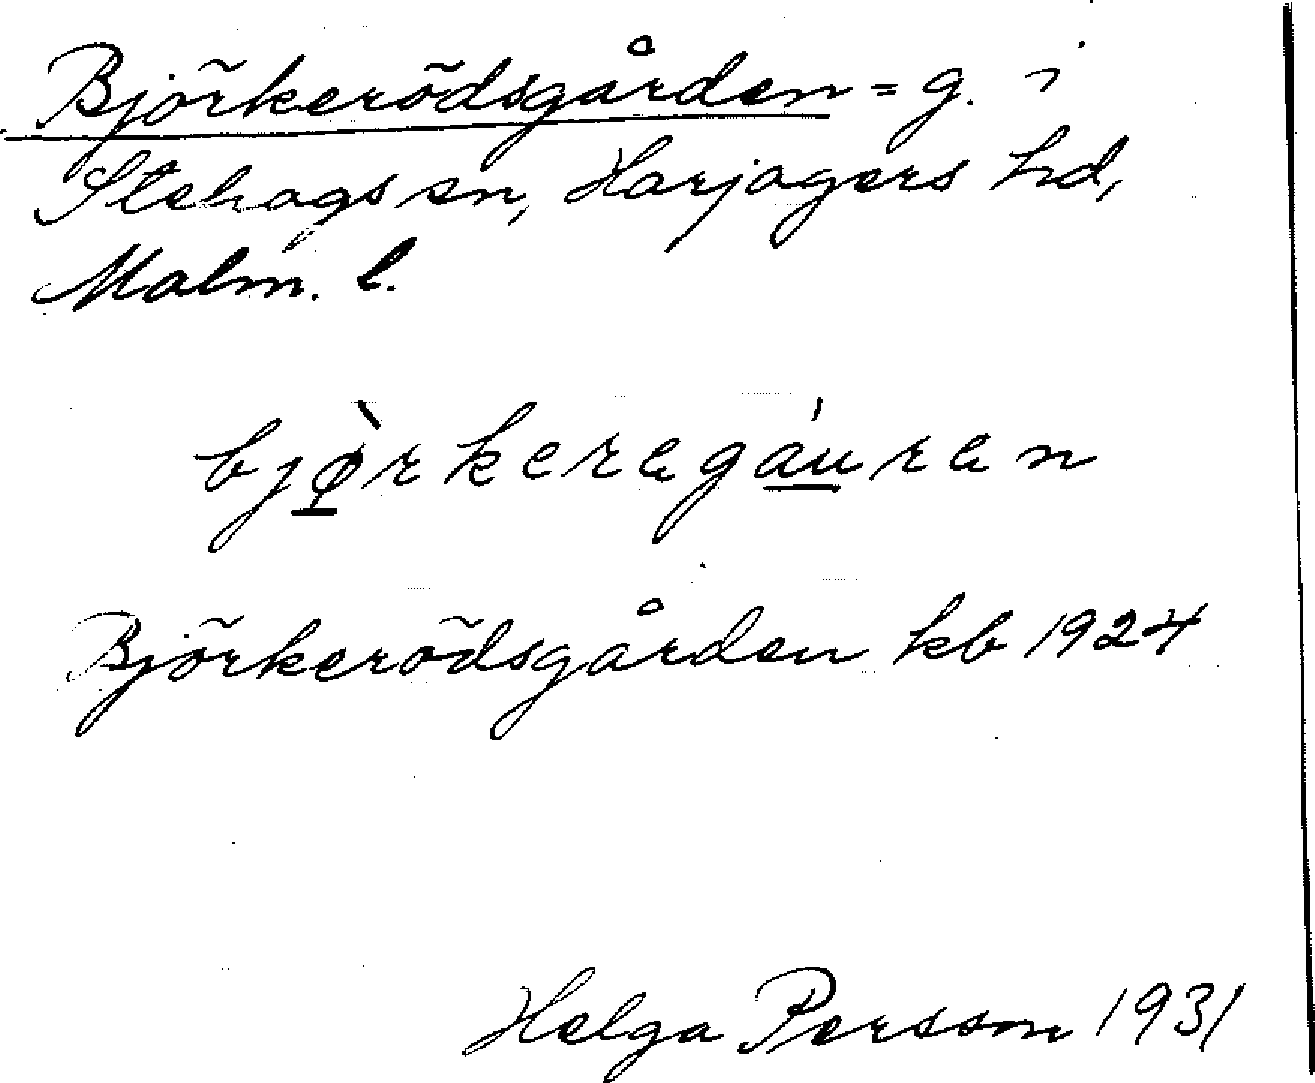 Björkerödsgården = g. i
Stehags sn, Harjagers hd,
Malm. l.
bjø̀rkeragáuran
Björkerödsgården kb 1924
Helga Persson 1931